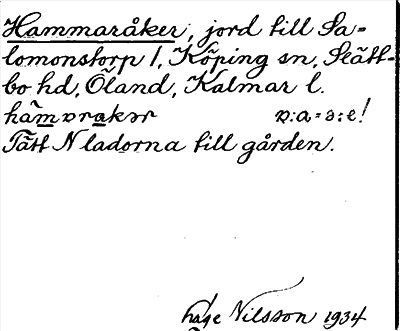 Hammaråker, jord till Sa=
lomonstorp 1, Köping sn, Slätt-
bo hd, Öland, Kalmar l.
Tätt N ladorna till gården.
Nilsson 1934